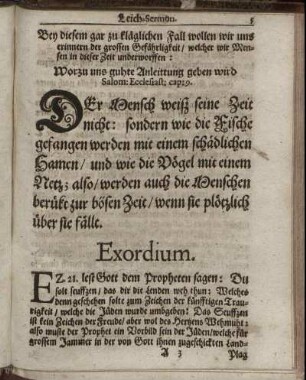 Leich-Sermon. 5
Bey diesem gar zu kläglichen Fall wollen wir uns
erinnern der grossen Gefährligkeit / welcher wir Men-
schen in dieser Zeit underworffen :
Worzu uns guhte Anleittung geben wird
Salom: Ecclesiast; cap. 9.
DEr Mensch weiß seine Zeit
nicht: sondern wie die Fische
gefangen werden mit einem schädlichen
Hamen / und wie die Vögel mit einem
Netz; also / werden auch die Menschen
berükt zur bösen Zeit / wenn sie plötzlich
über sie fällt.
Exordium.
EZ. 21. lest Gott dem Propheten sagen: Du
solt seuffzen / das dir die Lenden weh thun: Welches
denn geschehen solte zum Zeichen der künfftigen Trau-
rigkeit / welche die Jüden wurde umbgeben: Das Seuffzen
ist kein Zeichen der Freude / aber wol des Hertzens Wehmuht:
also muste der Prophet ein Vorbild sein der Jüden / welche für
grossem Jammer in der von Gott ihnen zugeschickten Land-
A 3 Plag